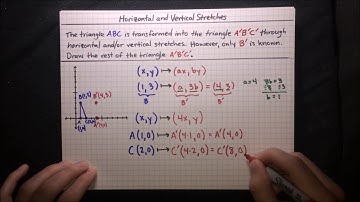 Horizontal and Vertical Stretches
The triangle ABC is transformed into the triangle A'B'C' through
horizontal and/or vertical stretches. However, only B' is known.
Draw the rest of the triangle A'B'C'.
(x,y) ↦ (ax, by)
a=4
(1,3) ↦ (a, 3b) = (4,3)
B B' B'
b=1
B(1,3) B'(4,3)
(x,y) ↦ (4x, y)
A(1,0) ↦ A'(4·1,0) = A'(4,0)
C(2,0) ↦ C'(4·2,0) = C'(8,0)